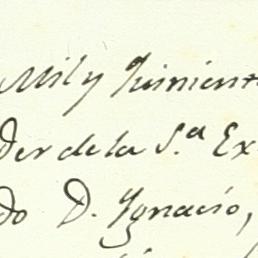 Mil y Quinient
der de la S.ª Ex
do D. Ignacio,